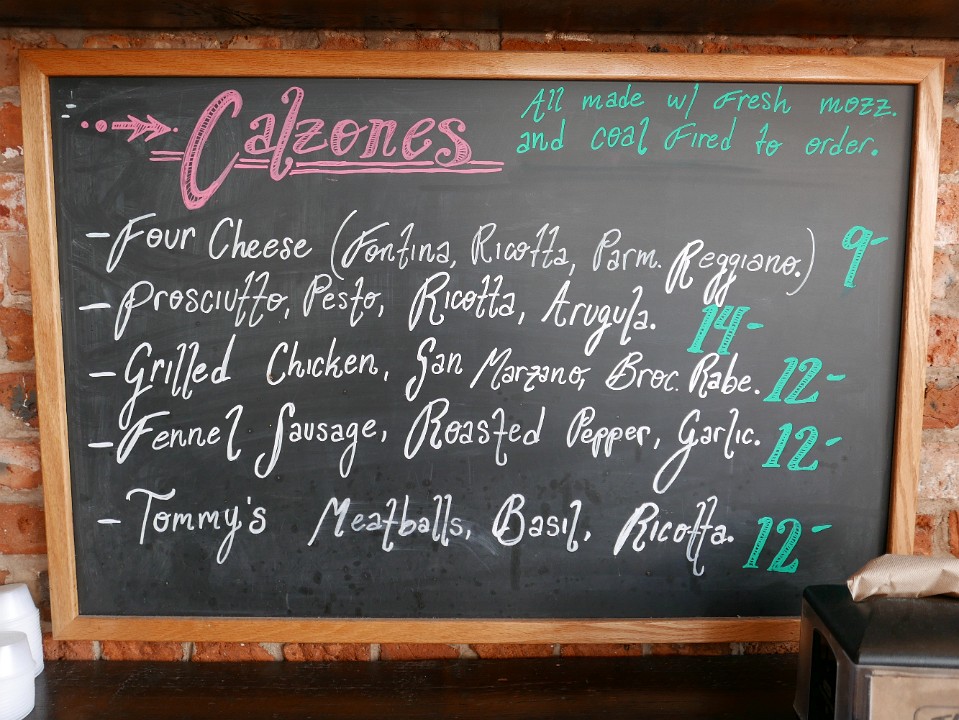 Calzones
All made w/ Fresh mozz.
and coal fired to order.
- Four Cheese (Fontina, Ricotta, Parm. Reggiano.) 9-
- Prosciutto, Pesto, Ricotta, Arugula. 14-
- Grilled Chicken, San Marzano, Broc. Rabe. 12-
- Fennel Sausage, Roasted Pepper, Garlic. 12-
- Tommy's Meatballs, Basil, Ricotta. 12-